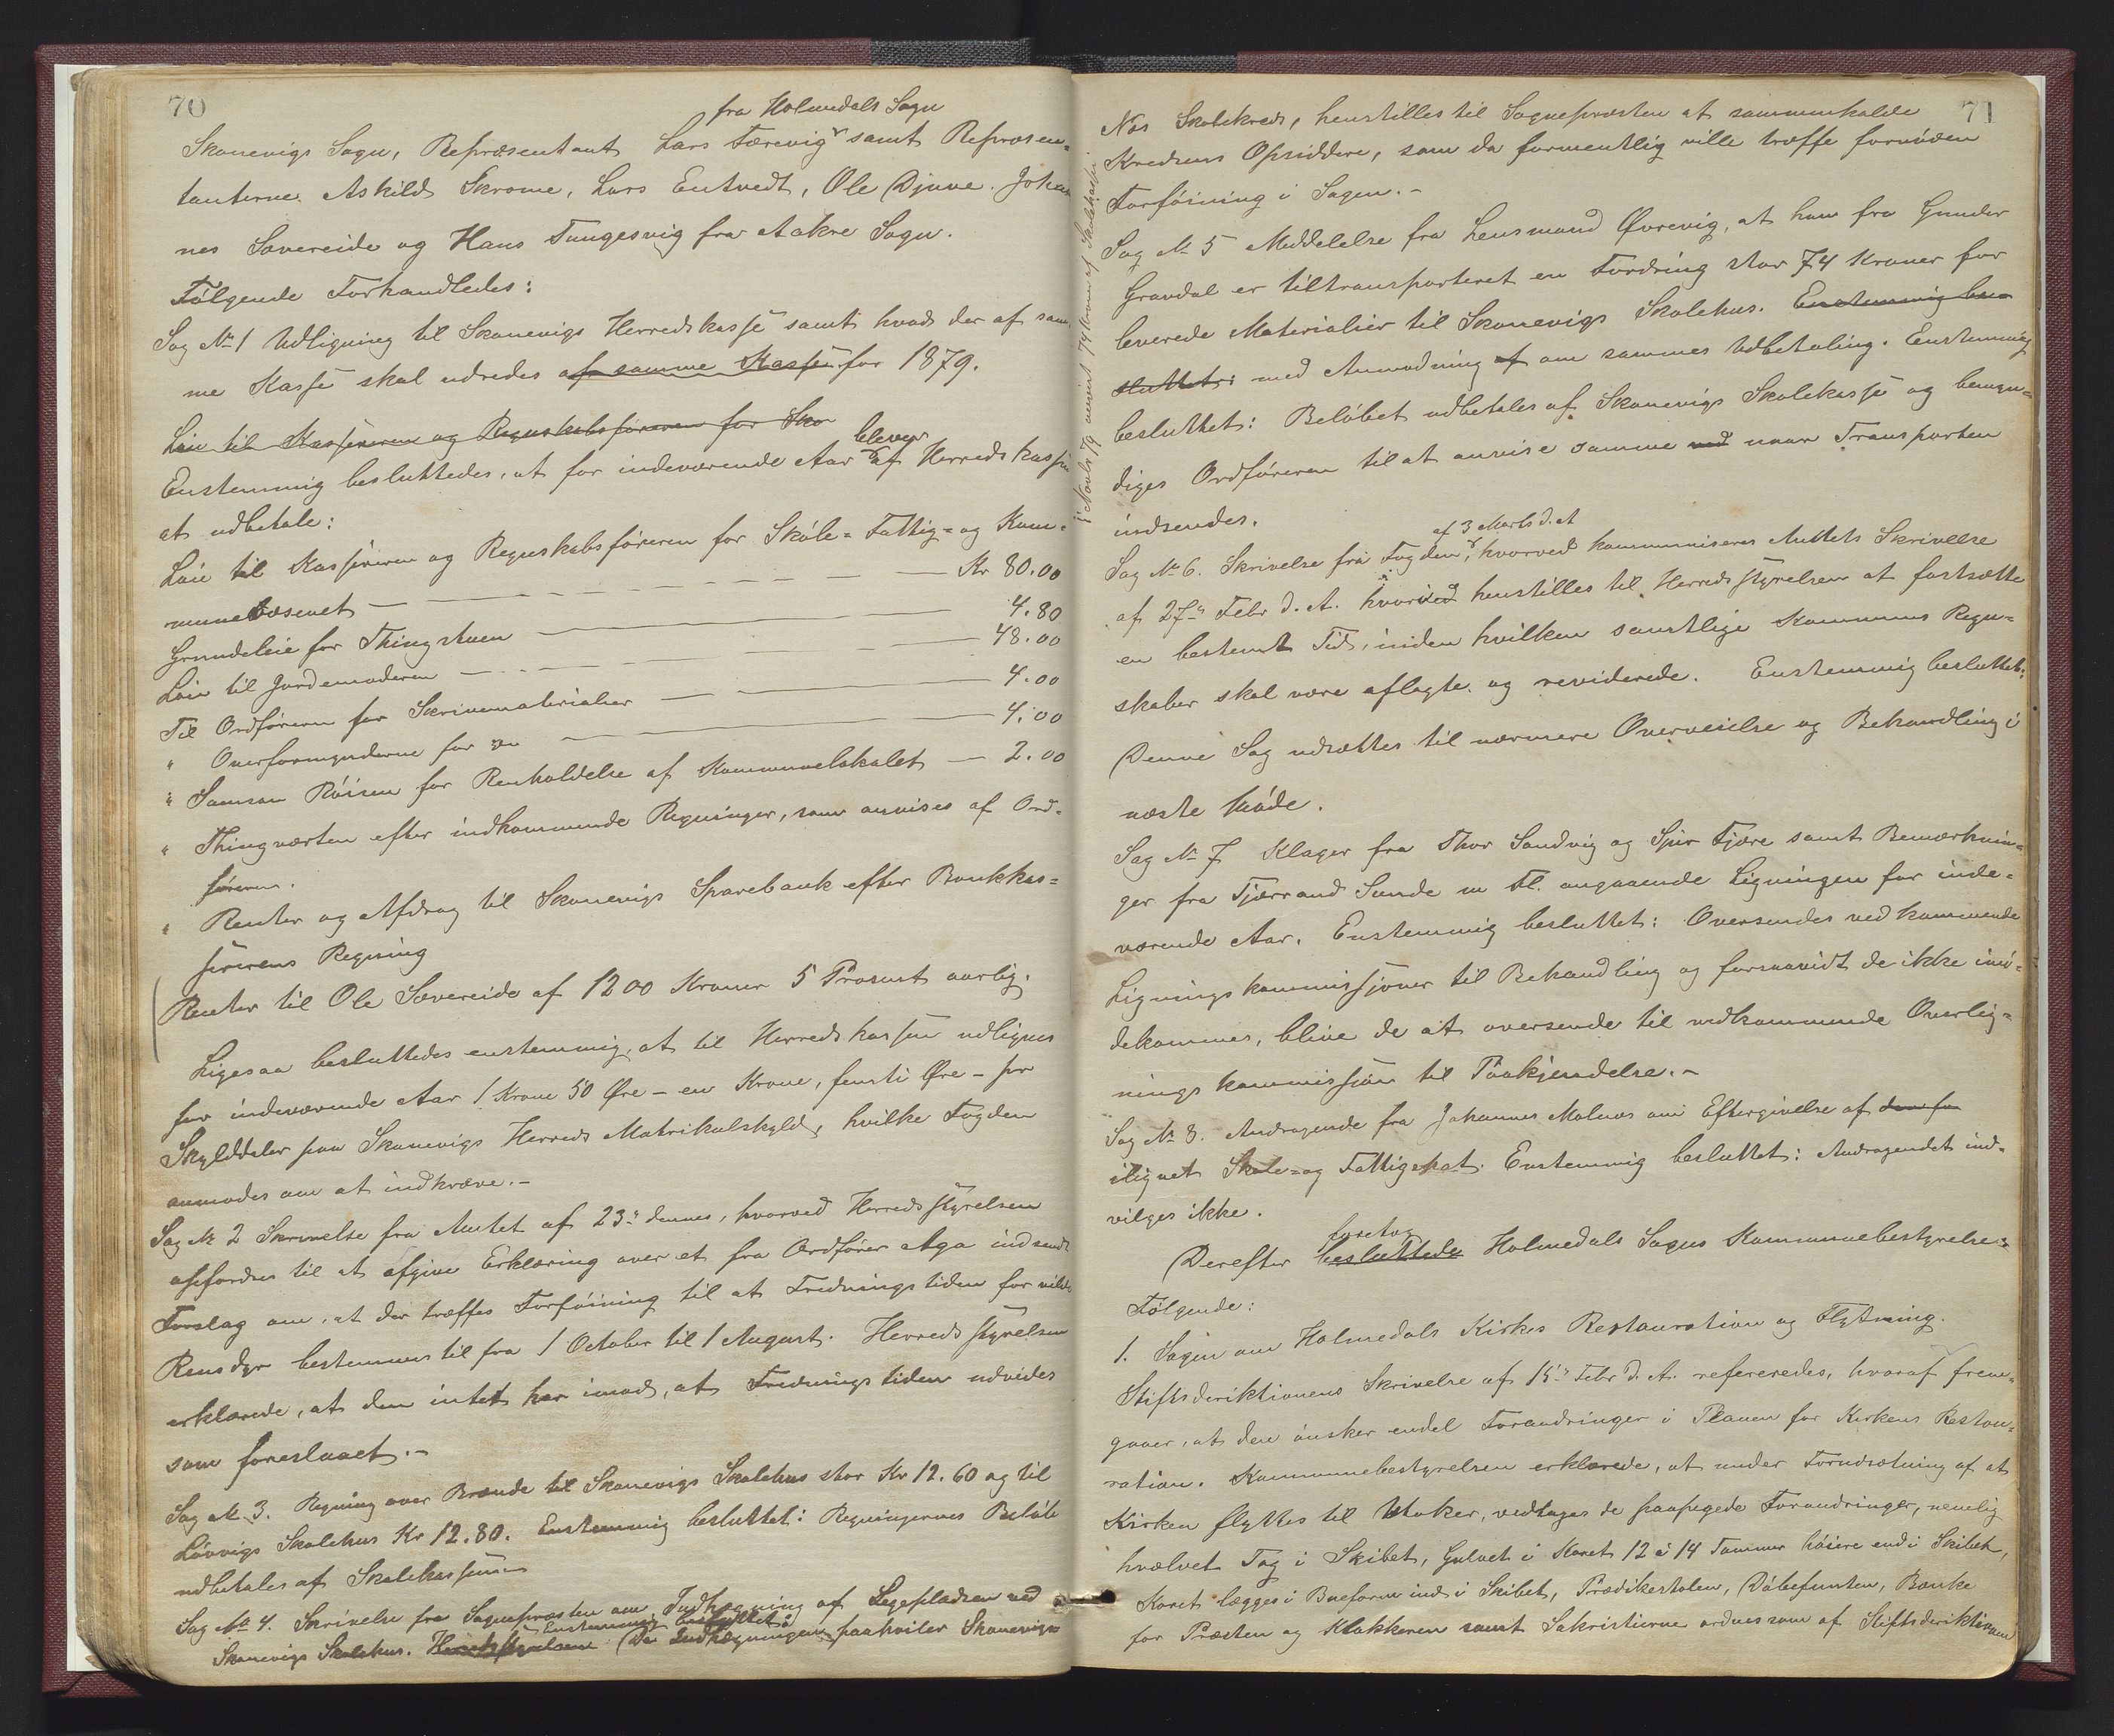 70
fra Holmedals Sogn
Skonevigs Sogn, Repræsentant Lars Tærevig samt Repræsen-
tanterne Askild Skrome, Lars Entvedt, Ole Djuve, Johan
nes Sævereide og Hans Tungesvig fra Aakre Sogn.
Følgende Forhandledes:
Sag No 1 Udligning til Skonevigs Herredskasse samt hvad der af sam-
me Kasse skal udredes af samme Kasse for 1879.
Løn til Kassereren og Regnskabsføreren for Sko
Enstemmig besluttedes, at for indeværende Aar bliver af Herredskassen
at udbetale:
Løn til Kassereren og Regnskabsføreren for Skole- Fattig- og Kom-
munevæsenet — Kr 80.00
Grundleie for Thingstuen — 4.80
Løn til Jordemoderen — 48.00
Til Ordføreren for Skrivematerialier — 4.00
" Overformynderne for do — 4.00
" Samson Röisen for Renholdelse af Kommunelokalet — 2.00
" Thingværten efter indkommende Regninger, som anvises af Ord-
føreren.
" Renter og Afdrag til Skonevigs Sparebank efter Bankkas-
sererens Regning
Renter til Ole Sævereide af 1200 Kroner 5 Prosent aarlig.
Ligesaa besluttedes enstemmig, at til Herredskassen udlignes
for indeværende Aar 1 Krone 50 Øre - en Krone, femti Øre - pr
Skylddaler paa Skonevigs Herreds Matrikulskyld, hvilke Fogden
anmodes om at indkræve.-
Sag No 2 Skrivelse fra Amtet af 23de dennes, hvorved Herredsstyrelsen
opfordres til at afgive Erklæring over et fra Ordfører Aga indsendt
Forslag om, at der træffes Forføining til at Fredningstiden for vilde
Rensdyr bestemmes til fra 1 October til 1 August. Herredsstyrelsen
erklærede, at den intet har imod, at Fredningstiden udvides
som foreslaaet.-
Sag No 3. Regning over Brænde til Skonevigs Skolehus stor Kr 12.60 og til
Løvvigs Skolehus Kr 12.80. Enstemmig besluttet: Regningernes Beløb
udbetales af Skolekassen.-
Sag No 4. Skrivelse fra Sognepræsten om Indhægning af Legepladsen ved
Enstemmig besluttet:
Skonevigs Skolehus. Herredsstyrelsen Da Indhægningen paahviler Skonevigs
71
Næs Skolekreds, henstilles til Sognepræsten at sammenkalde
Kredsens Opsiddere, som da formentlig ville træffe fornøden
Forføining i Sagen.-
Sag No 5 Meddelelse fra Lensmand Øvrevig, at han fra Gunder
Gravdal er tiltransporteret en Fordring stor 74 Kroner for
leverede Materialier til Skonevigs Skolehus. Enstemmig be-
sluttet: med Anmodning af om sammes Udbetaling. Enstemmig
besluttet: Beløbet udbetales af Skonevigs Skolekasse og bemyn-
diges Ordføreren til at anvise samme ved naar Transporten
indsendes.
af 3 Marts d. A
Sag No 6. Skrivelse fra Fogden, hvorved kommuniseres Amtets Skrivelse
af 27de Febr d. A. hvori henstilles til Herredsstyrelsen at fastsætte
en bestemt Tid, inden hvilken samtlige Kommunens Regn-
skaber skal være aflagte og reviderede. Enstemmig besluttet:
Denne Sag udsættes til nærmere Overveielse og Behandling i
næste Møde.
Sag No 7 Klager fra Thor Sandvig og Sjur Fjære samt Bemærknin-
ger fra Tjærrand Sunde m Fl. angaaende Ligningen for inde-
værende Aar. Enstemmig besluttet: Oversendes vedkommende
Ligningskommissjoner til Behandling og forsaavidt de ikke imø-
dekommes, blive de at oversende til vedkommende Overlig-
ningskommissjon til Paakjendelse.-
Sag No 8. Andragende fra Johannes Molnes om Eftergivelse af den for
ilignet Skole- og Fattigskat. Enstemmig besluttet: Andragendet ind-
vilges ikke.
foretog
Derefter besluttede Holmedals Sogns Kommunebestyrelse
Følgende:
1. Sagen om Holmedals Kirkes Restauration og Flytning.
Stiftsdirektionens Skrivelse af 15de Febr d. A. refereredes, hvoraf frem-
gaaer, at den ønsker endel Forandringer i Planen for Kirkens Restau-
ration. Kommunebestyrelsen erklærede, at under Forudsætning af at
Kirken flyttes til Utaker, vedtages de paapegede Forandringer, nemlig
hvælvet Tag i Skibet, Gulvet i Koret 12 à 14 Tommer høiere end i Skibet,
Koret lægges i Bueform ind i Skibet, Prædikestolen, Døbefunten, Bænke
for Præsten og Klokkeren samt Sakristierne ordnes som af Stiftsdirektionen
i Novbr 79 anvist 74 Kroner af Skolekassen